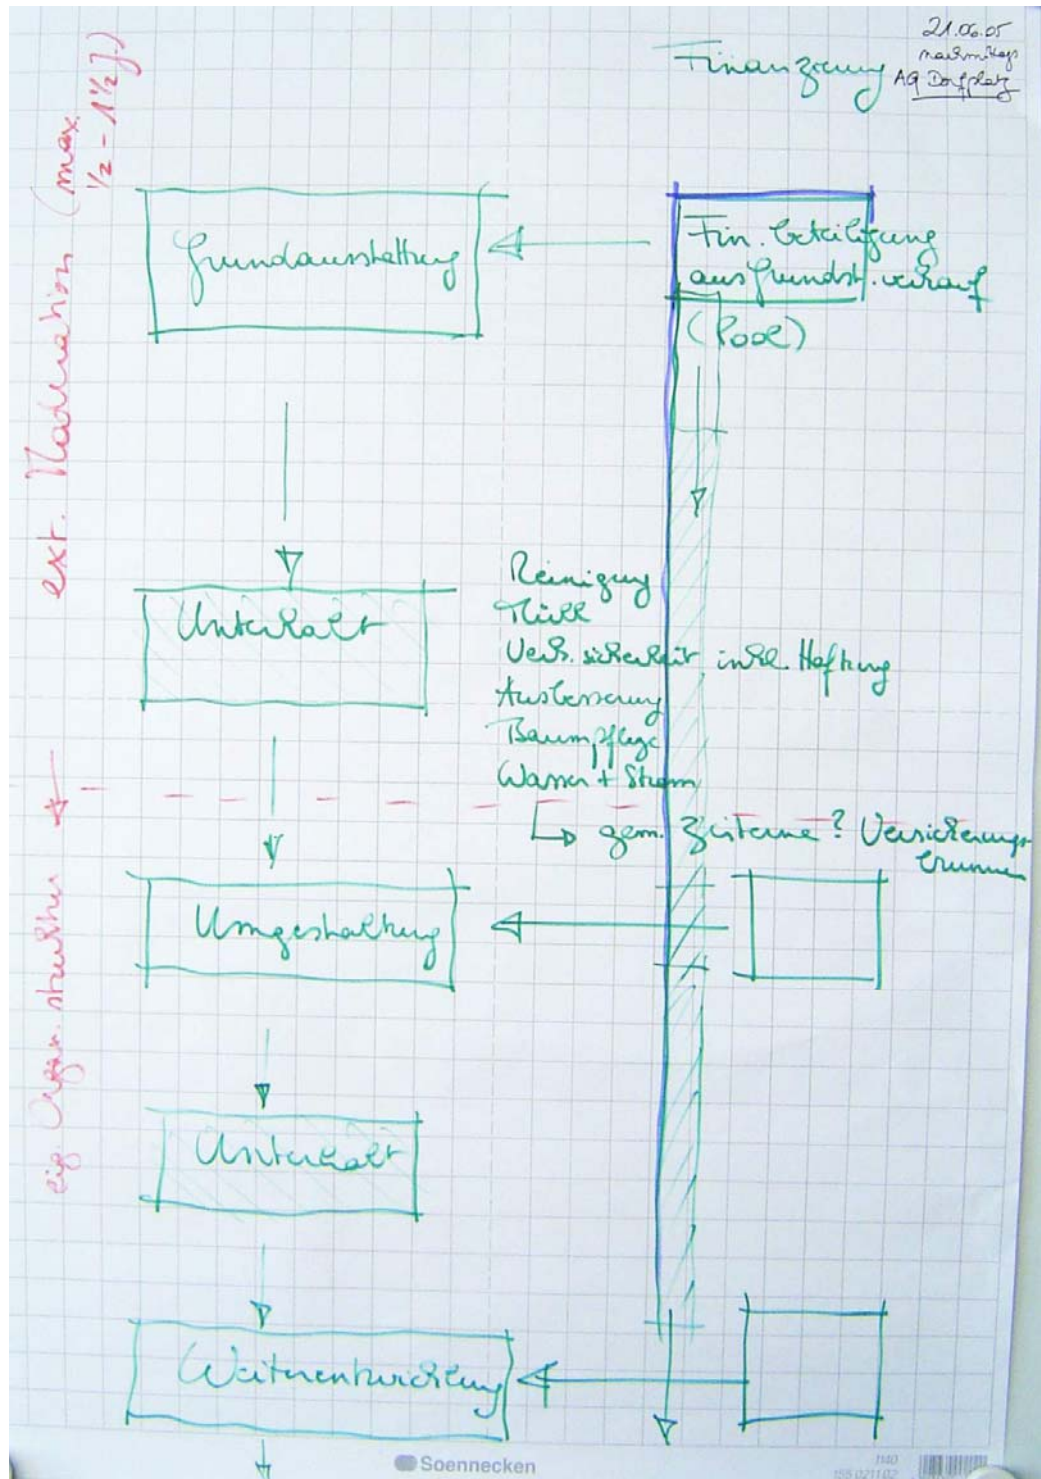 21.06.05
nachmittags
AG Dorfplatz
Finanzierung
ext. Moderation (max.
1/2 - 1 1/2 J.)
Grundausstattung
Fin. beteiligung
aus Grundst. verkauf
(Pool)
Unterhalt
Reinigung
Müll
Verk. sicherheit inkl. Haftung
Ausbesserung
Baumpflege
Wasser + Strom
gem. Zisterne? Versickerungs-
brunnen
eig. Organ. struktur
Umgestaltung
Unterhalt
Weiterentwicklung
Soennecken
1140
155 021102